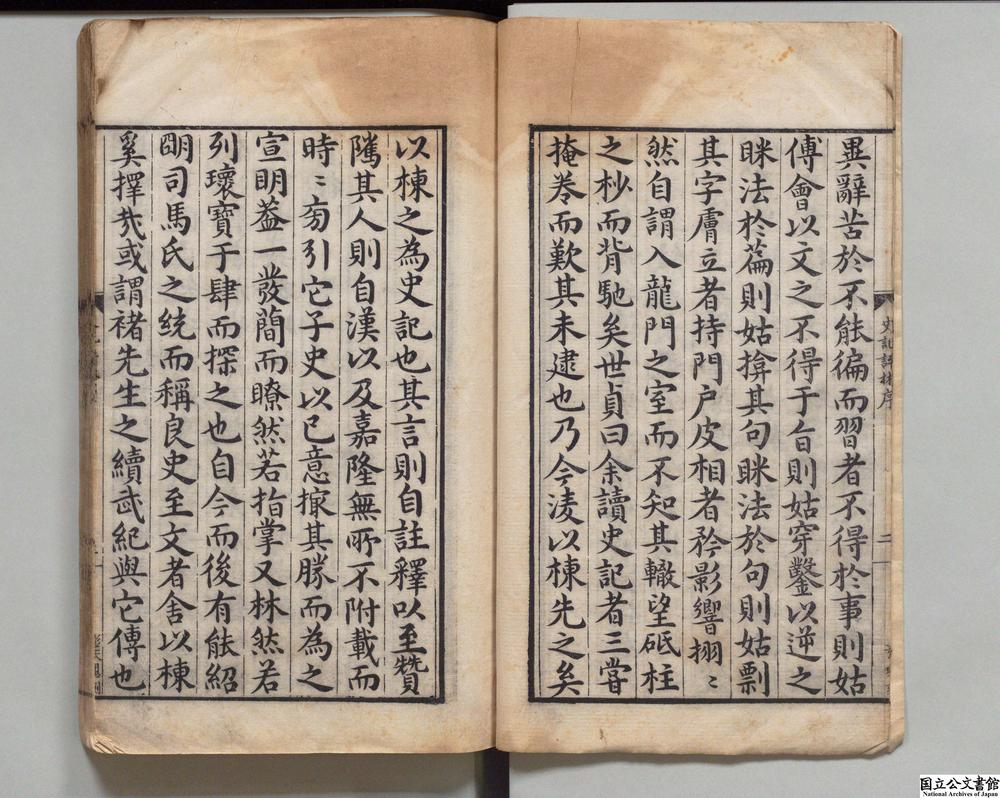 異辭苦於不能徧而習者不得於事則姑
傅會以文之不得于旨則姑穿鑿以逆之
眯法於篇則姑揜其句眯法於句則姑剽
其字膚立者持門戶皮相者矜影響栩〻
然自謂入龍門之室而不知其轍望砥柱
之杪而背馳矣世貞曰余讀史記者三嘗
掩卷而歎其未逮也乃今淩以棟先之矣
史記評林序
二
以棟之為史記也其言則自註釋以至贊
隲其人則自漢以及嘉隆無所不附載而
時〻旁引它子史以己意撮其勝而為之
宣明葢一發簡而瞭然若指掌又林然若
列瓌寶于肆而探之也自今而後有能紹
明司馬氏之統而稱良史至文者舍以棟
奚擇哉或謂褚先生之續武紀與它傳也
國立公文書館
National Archives of Japan